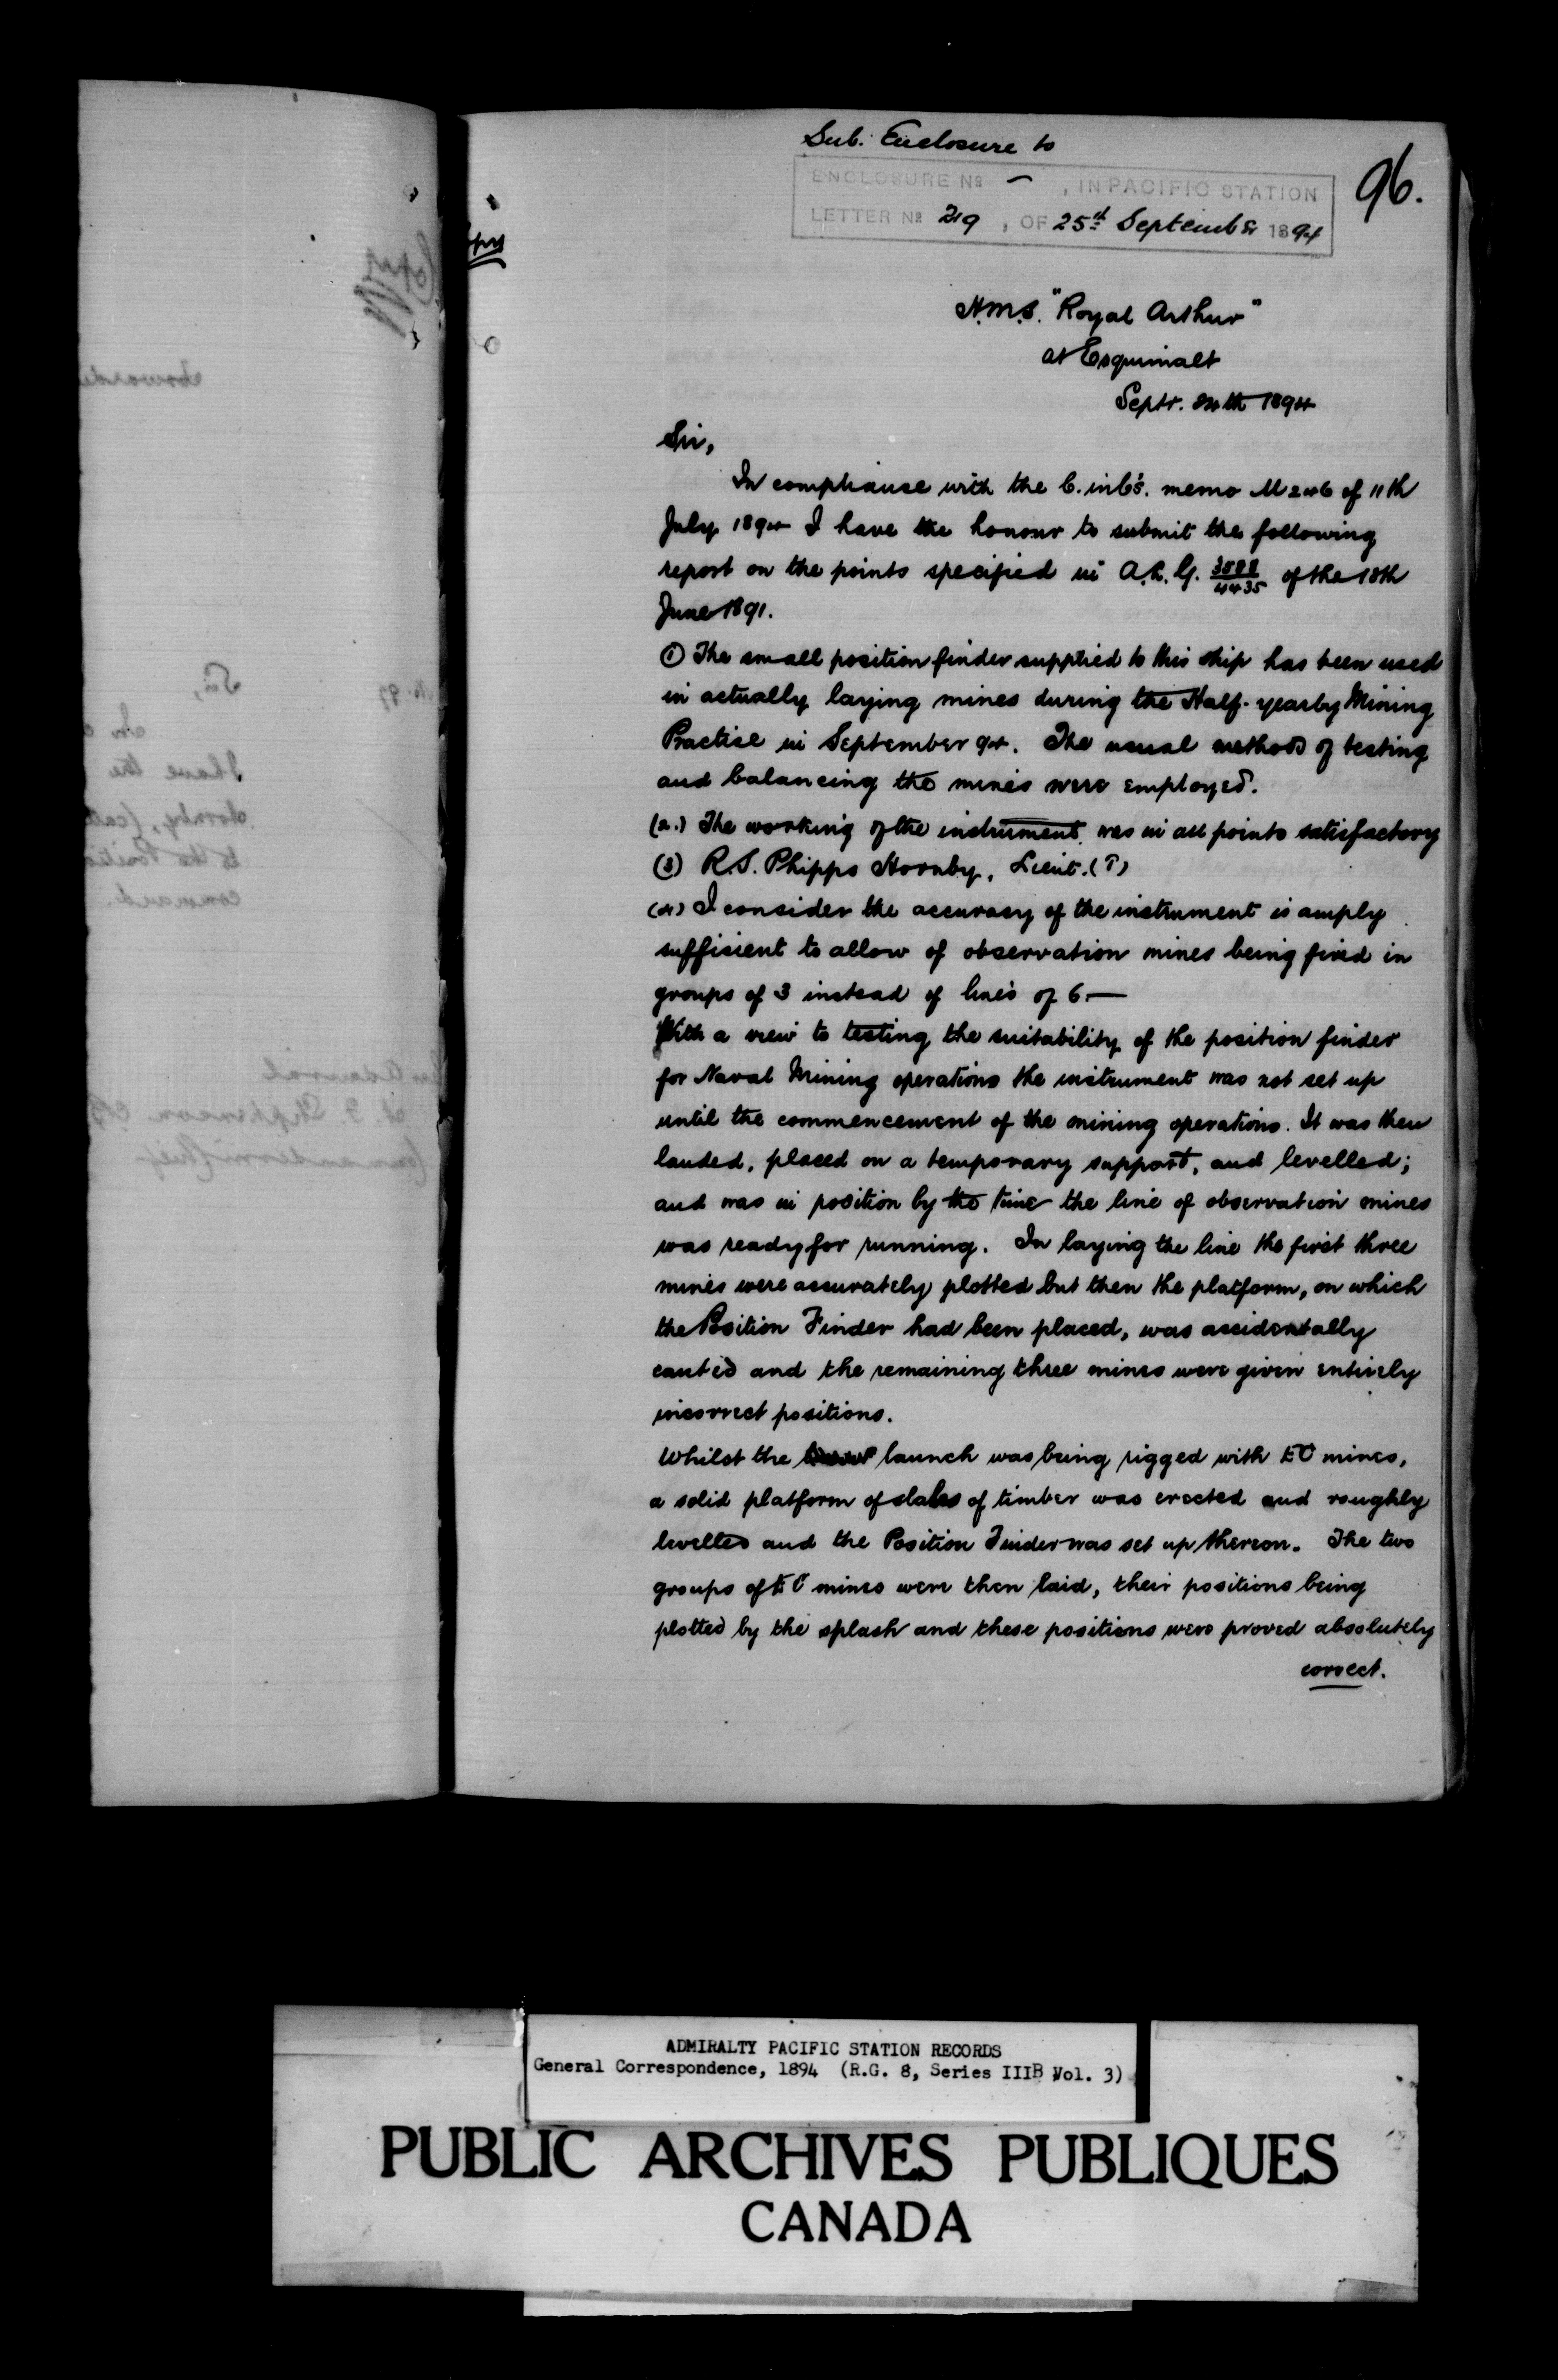 Sub. Enclosure to
ENCLOSURE No — , IN PACIFIC STATION
LETTER No 219 , OF 25th September 1894
96.
H.M.S. "Royal Arthur"
at Esquimalt
Septr. 24th 1894
Sir,
In compliance with the C. in C's. memo M 246 of 11th
July 1894 I have the honour to submit the following
report on the points specified in A.L. G. 3588/4435 of the 18th
June 1891.
(1) The small position finder supplied to this ship has been used
in actually laying mines during the Half-yearly Mining
Practise in September 94. The usual methods of testing
and balancing the mines were employed.
(2.) The working of the instrument was in all points satisfactory
(3) R.S. Phipps Hornby, Lieut. (T)
(4) I consider the accuracy of the instrument is amply
sufficient to allow of observation mines being fired in
groups of 3 instead of lines of 6.—
With a view to testing the suitability of the position finder
for Naval Mining operations the instrument was not set up
until the commencement of the mining operations. It was then
landed, placed on a temporary support, and levelled;
and was in position by the time the line of observation mines
was ready for running. In laying the line the first three
mines were accurately plotted but then the platform, on which
the Position Finder had been placed, was accidentally
canted and the remaining three mines were given entirely
incorrect positions.
Whilst the launch was being rigged with EC mines,
a solid platform of slabs of timber was erected and roughly
levelled and the Position Finder was set up thereon. The two
groups of EC mines were then laid, their positions being
plotted by the splash and these positions were proved absolutely
correct.
ADMIRALTY PACIFIC STATION RECORDS
General Correspondence, 1894 (R.G. 8, Series IIIB Vol. 3)
PUBLIC ARCHIVES PUBLIQUES
CANADA